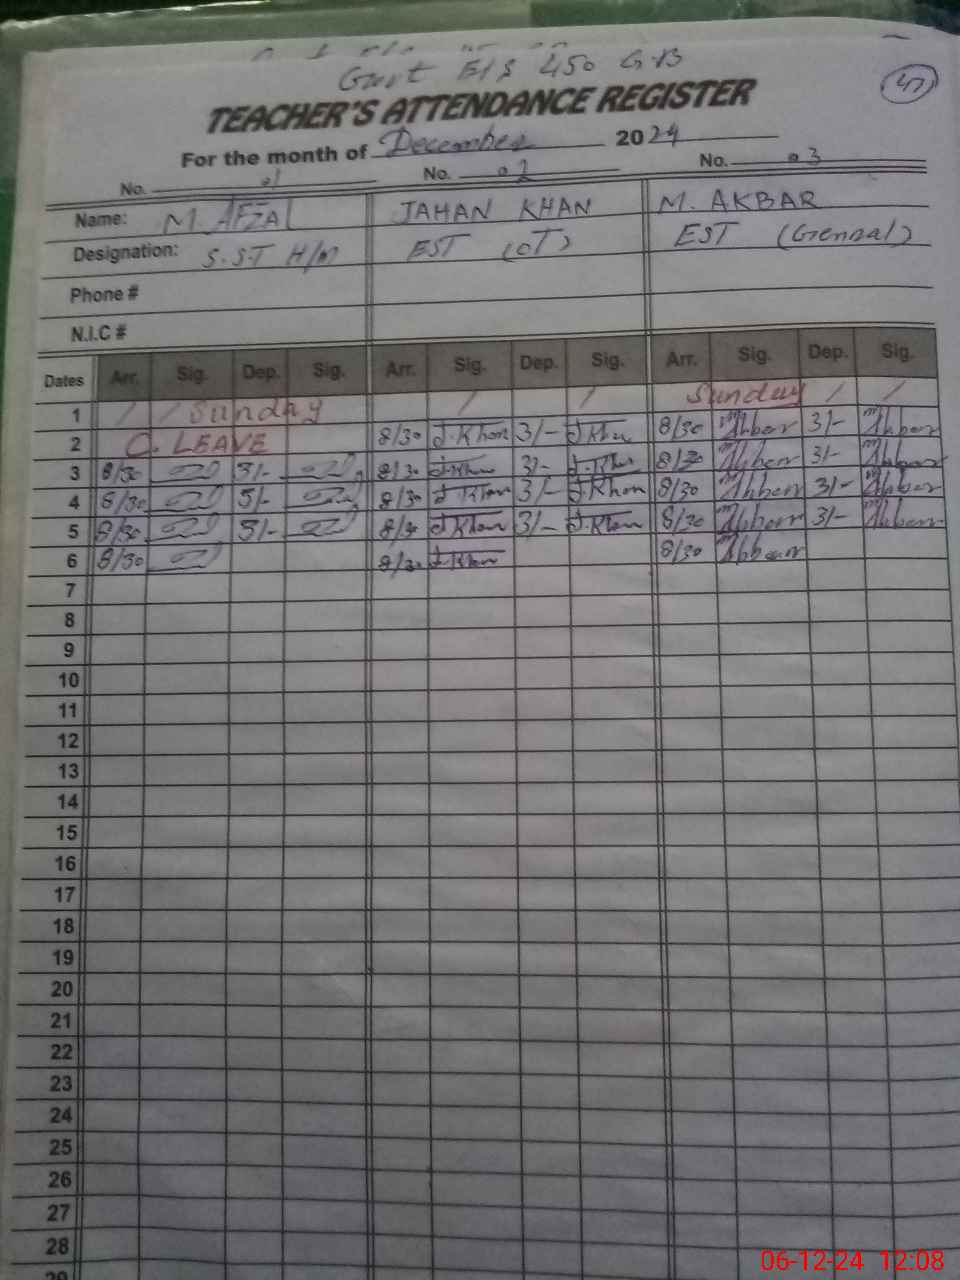 Govt E/S 450 G.B
47
TEACHER'S ATTENDANCE REGISTER
For the month of December 2024
No. 01 No. 02 No. 03
Name: M. AFZAL JAHAN KHAN M. AKBAR
Designation: S.S.T H/M EST (OT) EST (Genral)
Phone #
N.I.C #
Dates Arr. Sig. Dep. Sig. Arr. Sig. Dep. Sig. Arr. Sig. Dep. Sig.
1 / / Sunday / / Sunday / /
2 C. LEAVE 8/30 J.Khan 3/- J.Khan 8/30 M Akbar 3/- M Akbar
3 8/30 3/- 8/30 J.Khan 3/- J.Khan 8/30 Akbar 3/- Akbar
4 8/30 3/- 8/30 J.Khan 3/- J.Khan 8/30 Akbar 3/- Akbar
5 8/30 3/- 8/30 J.Khan 3/- J.Khan 8/30 Akbar 3/- Akbar
6 8/30 8/30 J.Khan 8/30 Akbar
7
8
9
10
11
12
13
14
15
16
17
18
19
20
21
22
23
24
25
26
27
28
29
06-12-24 12:08